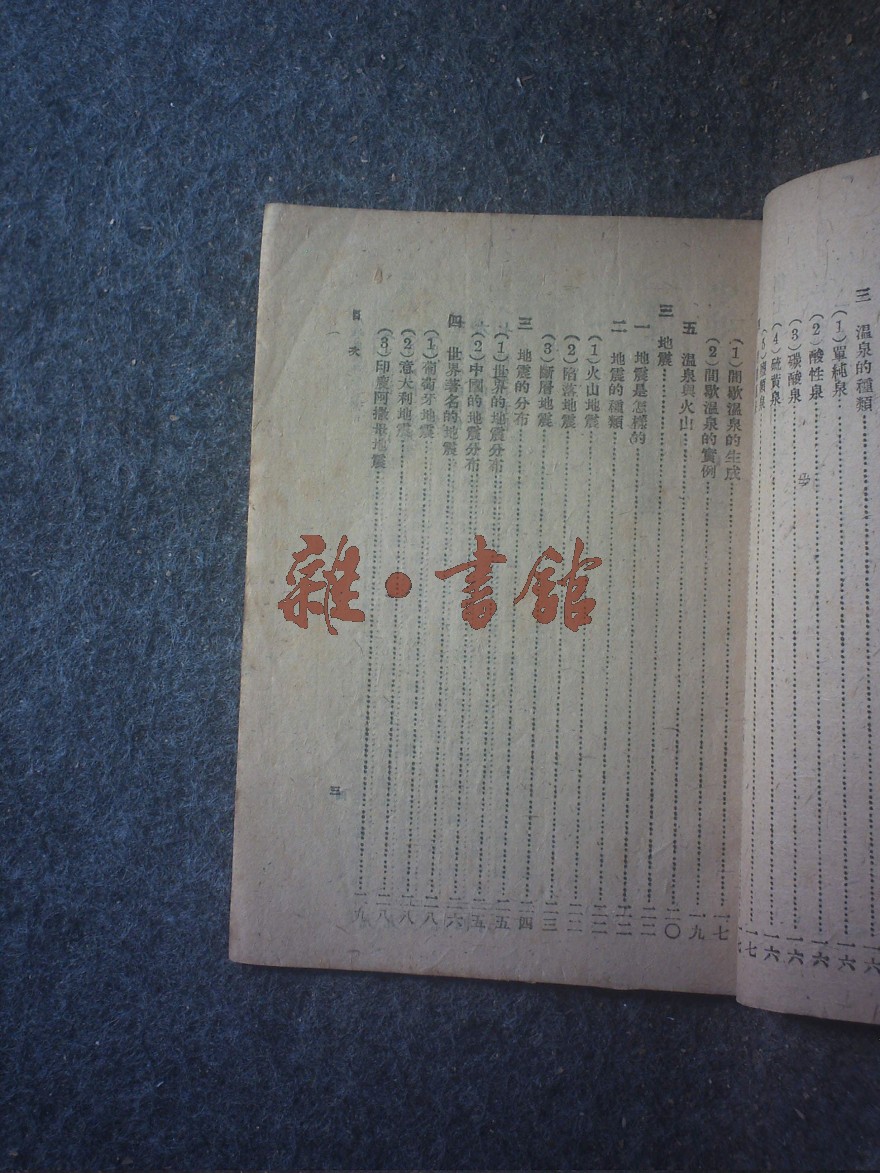 三　温泉的種類……一六
（1）單純泉……一六
（2）酸性泉……一六
（3）礬酸泉……一六
（4）硫黃泉……一六
（1）間歇温泉的生成
（2）間歇温泉的實例……一七
五　温泉與火山……一九
三　地震……二〇
一　地震是怎樣的……二二
二　地震的種類……二二
（1）火山地震……二二
（2）陷落地震
（3）斷層地震……二三
三　地震的分布……二四
（1）世界的地震分布……二五
（2）中國的地震分布……二五
四　世界著名的地震……二六
（1）葡萄牙地震……二八
（2）意大利地震……二八
（3）印度阿撒密地震
目次
三
雜·書館